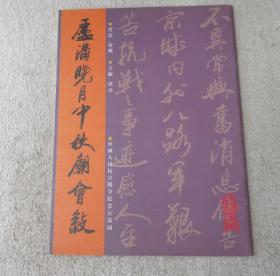 不異常興奮消息傳告
京城内外八路軍艱
苦抗戰之事迹感人至
中國人民抗日戰爭紀念
盧溝晓月中秋廟會